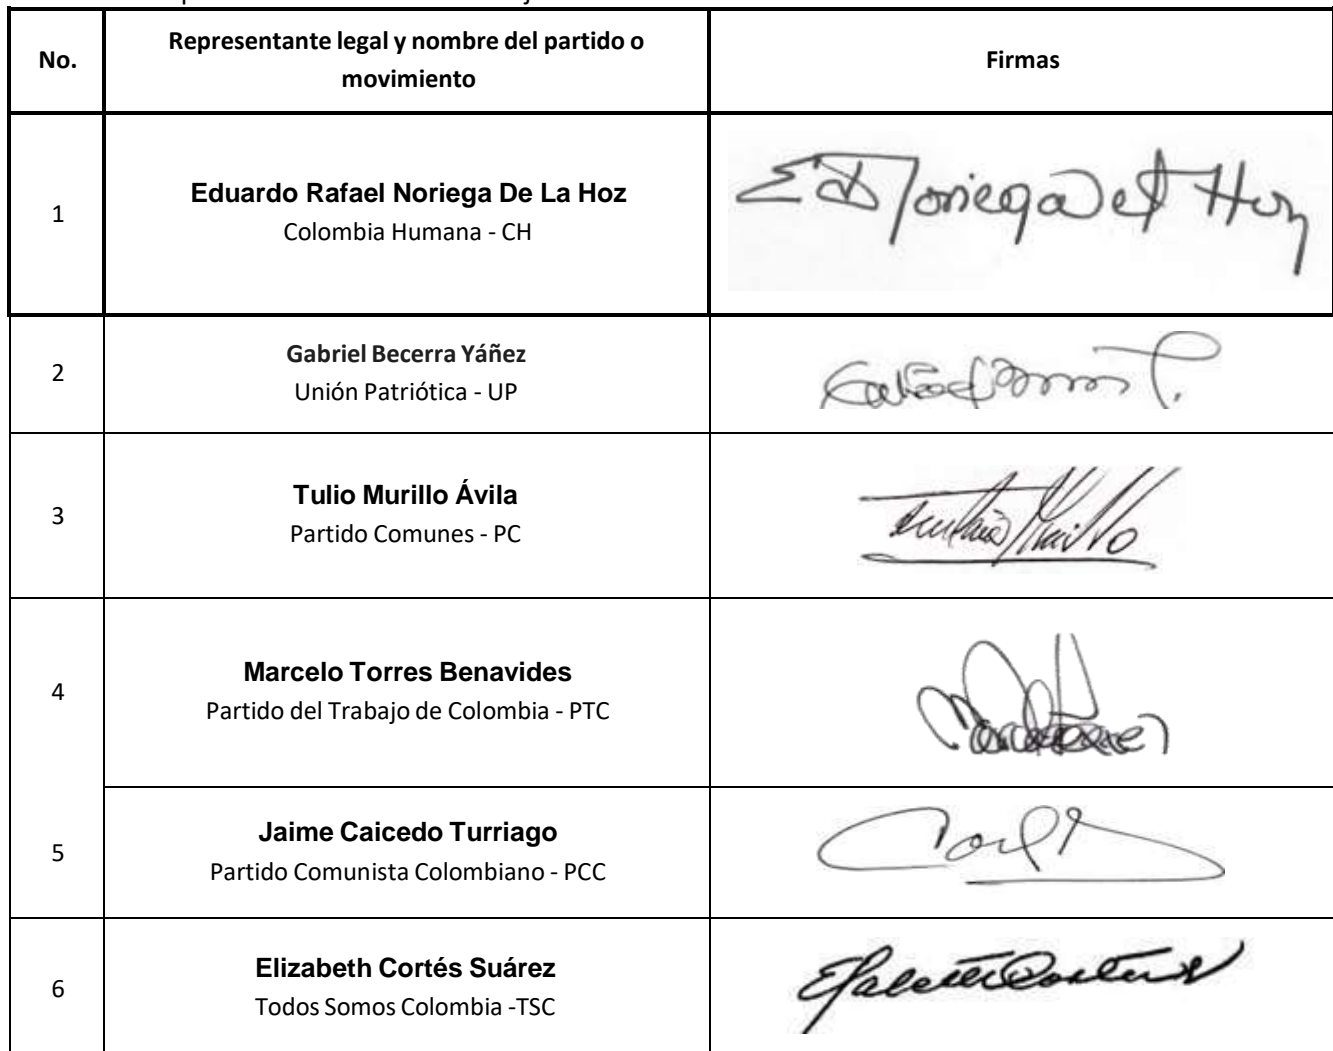 No.
Representante legal y nombre del partido o
movimiento
Firmas
1
Eduardo Rafael Noriega De La Hoz
Colombia Humana - CH
2
Gabriel Becerra Yáñez
Unión Patriótica - UP
3
Tulio Murillo Ávila
Partido Comunes - PC
4
Marcelo Torres Benavides
Partido del Trabajo de Colombia - PTC
5
Jaime Caicedo Turriago
Partido Comunista Colombiano - PCC
6
Elizabeth Cortés Suárez
Todos Somos Colombia -TSC